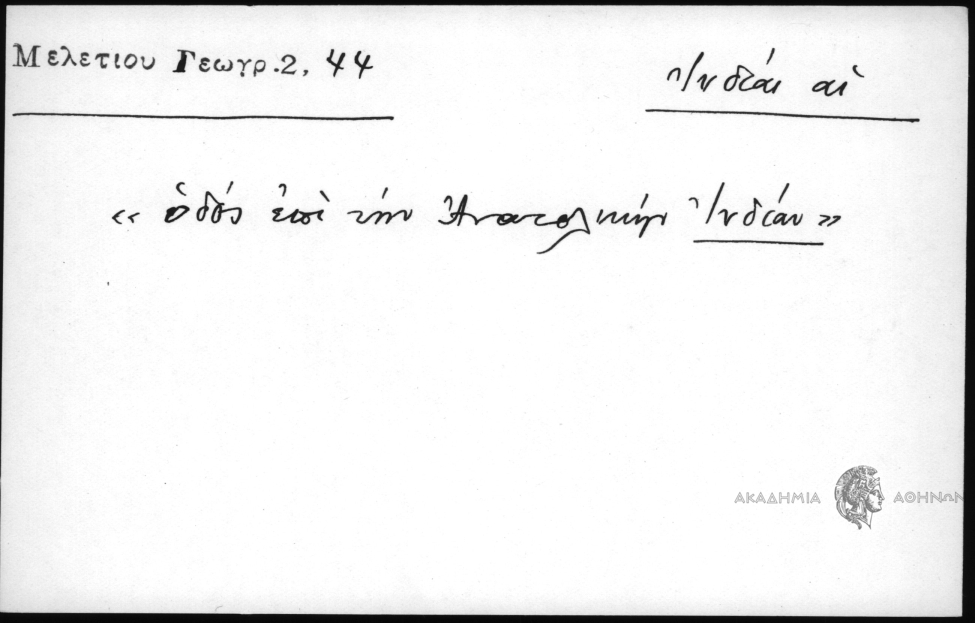 Μελετιου Γεωγρ.2, 44
Ἰνδίαι αἱ
« ὁδός ἐπὶ τὴν Ἀνατολικήν Ἰνδίαν »
ΑΚΑΔΗΜΙΑ ΑΘΗΝΩΝ